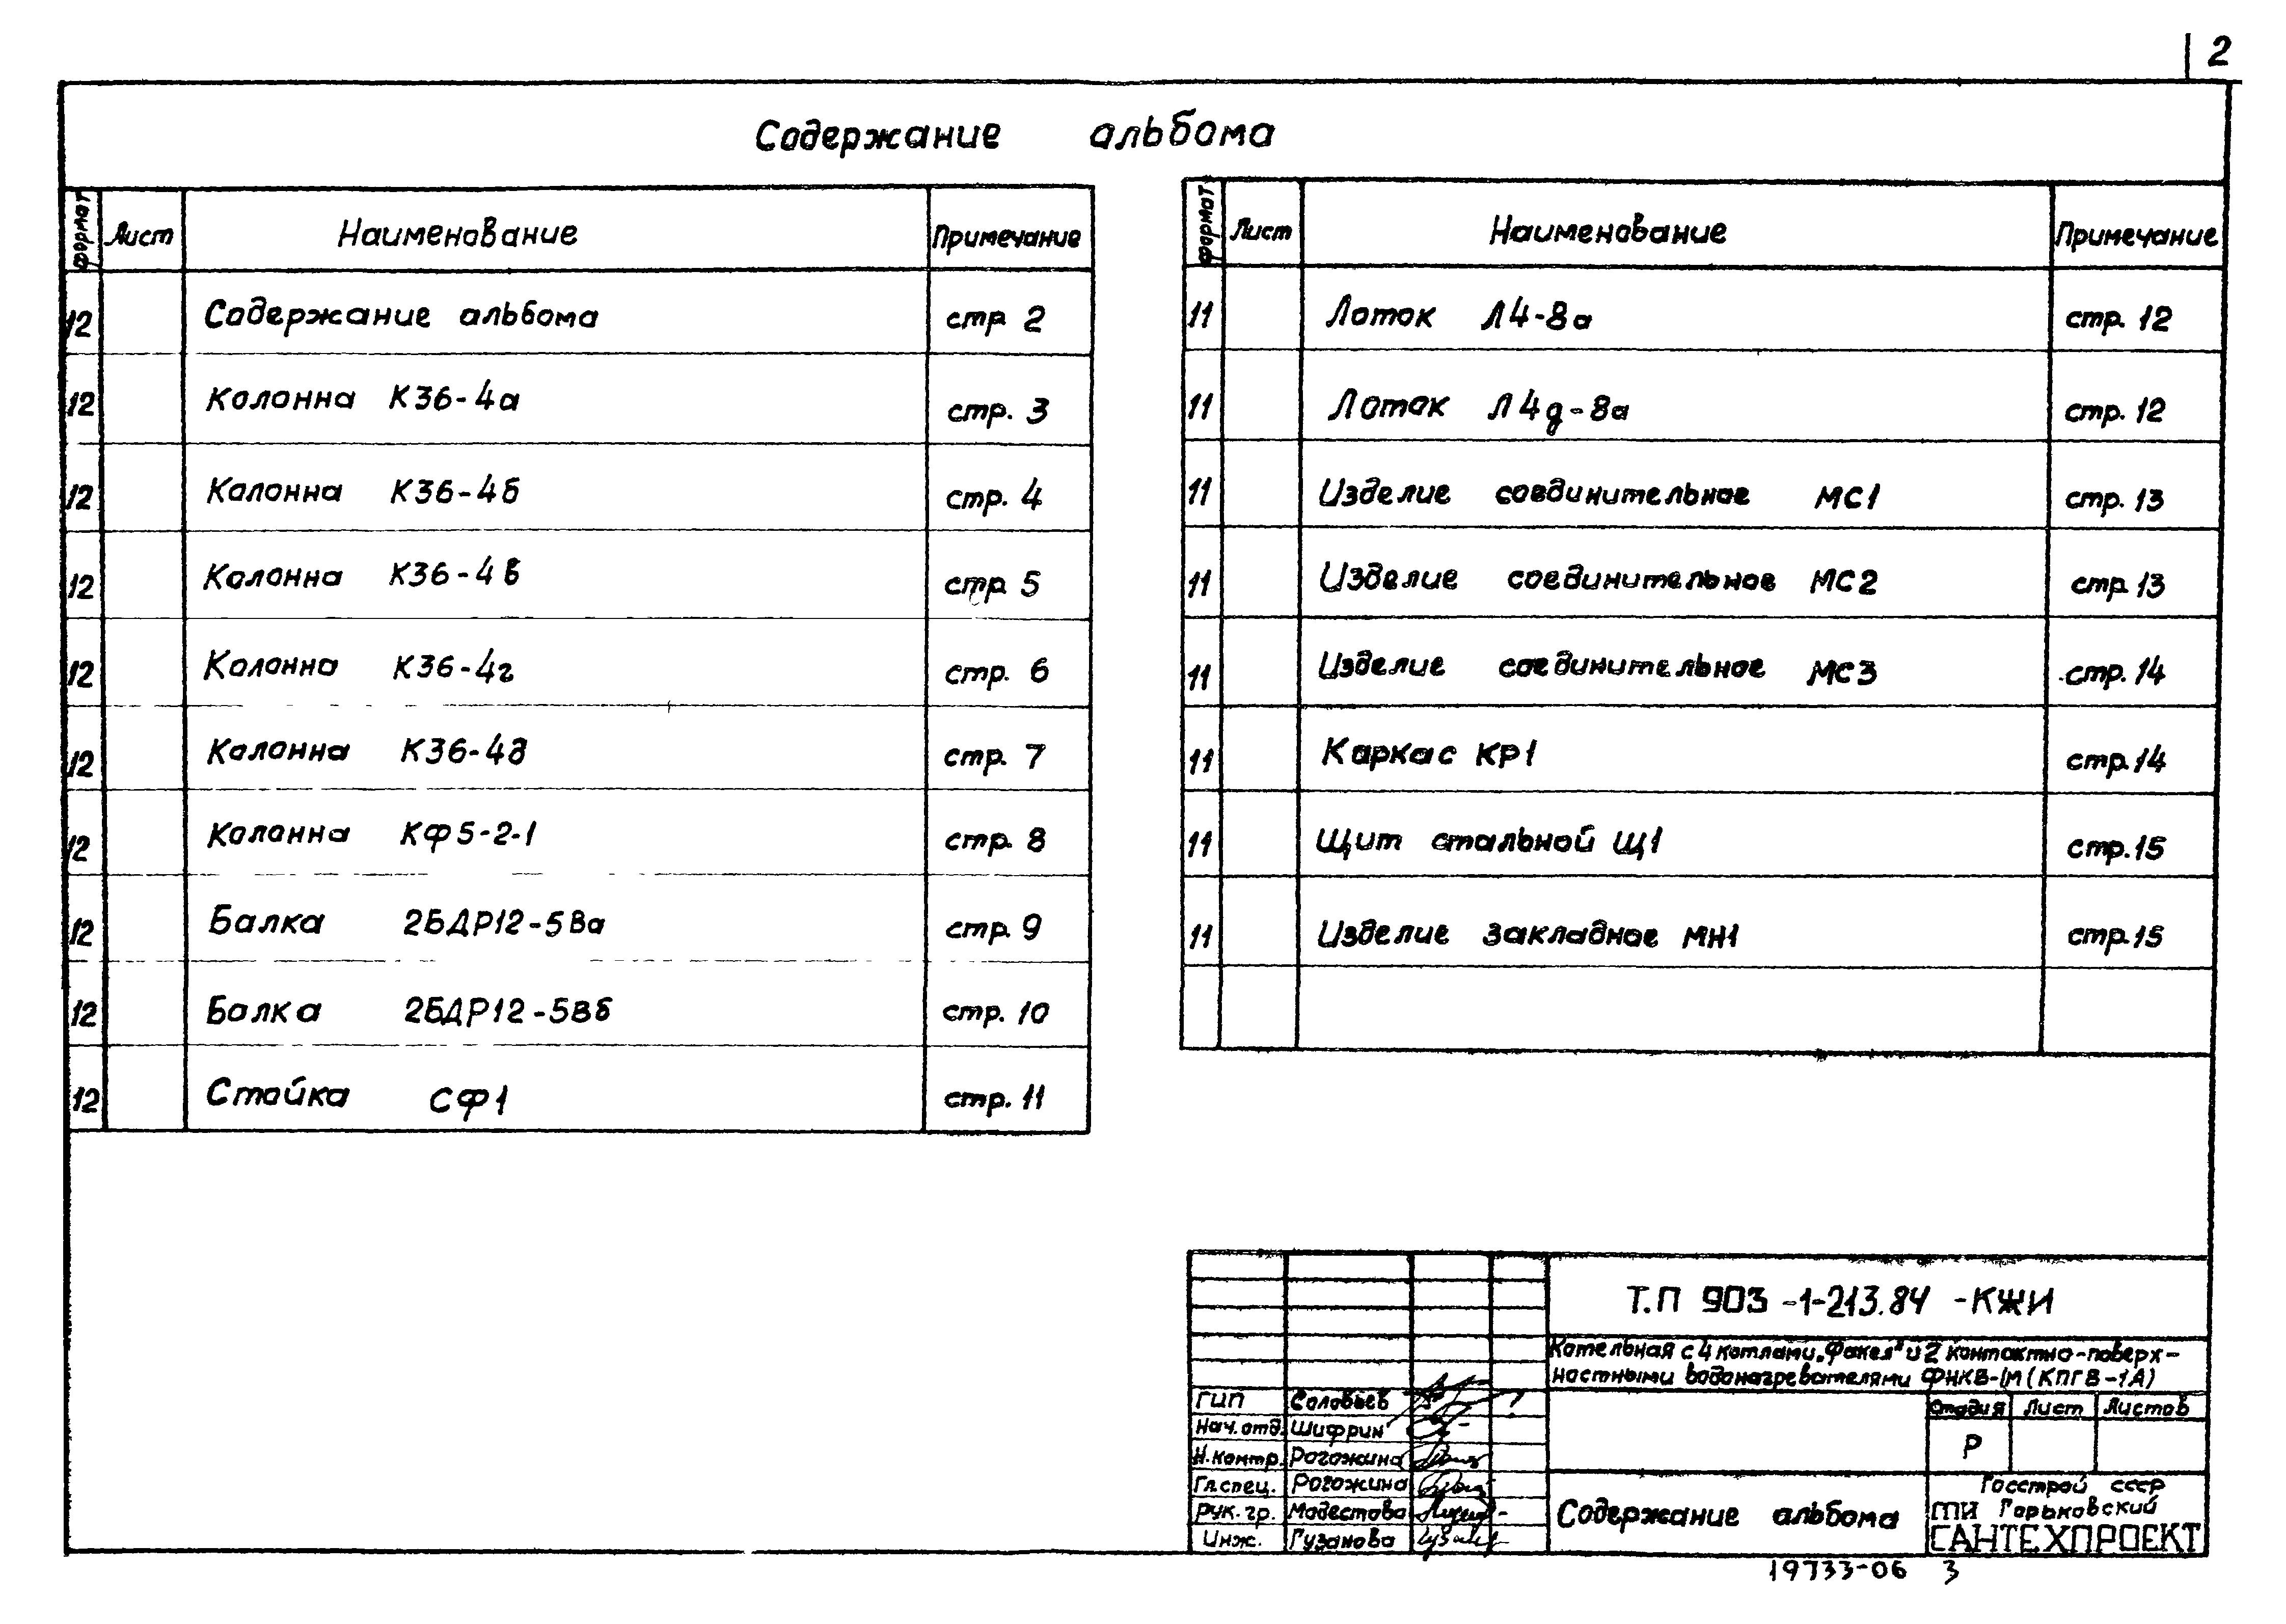 2
Содержание альбома
формат Лист Наименование Примечание
12 Содержание альбома стр. 2
12 Колонна К36-4а стр. 3
12 Колонна К36-4б стр. 4
12 Колонна К36-4в стр. 5
12 Колонна К36-4г стр. 6
12 Колонна К36-4д стр. 7
12 Колонна КФ5-2-1 стр. 8
12 Балка 2БДР12-5Ва стр. 9
12 Балка 2БДР12-5Вб стр. 10
12 Стойка СФ1 стр. 11
формат Лист Наименование Примечание
11 Лоток Л4-8а стр. 12
11 Лоток Л4д-8а стр. 12
11 Изделие соединительное МС1 стр. 13
11 Изделие соединительное МС2 стр. 13
11 Изделие соединительное МС3 стр. 14
11 Каркас КР1 стр. 14
11 Щит стальной Щ1 стр. 15
11 Изделие закладное МН1 стр. 15
Т.П 903-1-213.84 -КЖИ
Котельная с 4 котлами „Факел" и 2 контактно-поверх-
ностными водонагревателями ФНКВ-1М (КПГВ-1А)
ГИП Соловьев
Нач. отд. Шифрин
Н. контр. Рогожина
Гл. спец. Рогожина
Рук. гр. Модестова
Инж. Гузанова
Стадия Лист Листов
Р
Содержание альбома
Госстрой СССР
ГПИ Горьковский
САНТЕХПРОЕКТ
19733-06 3